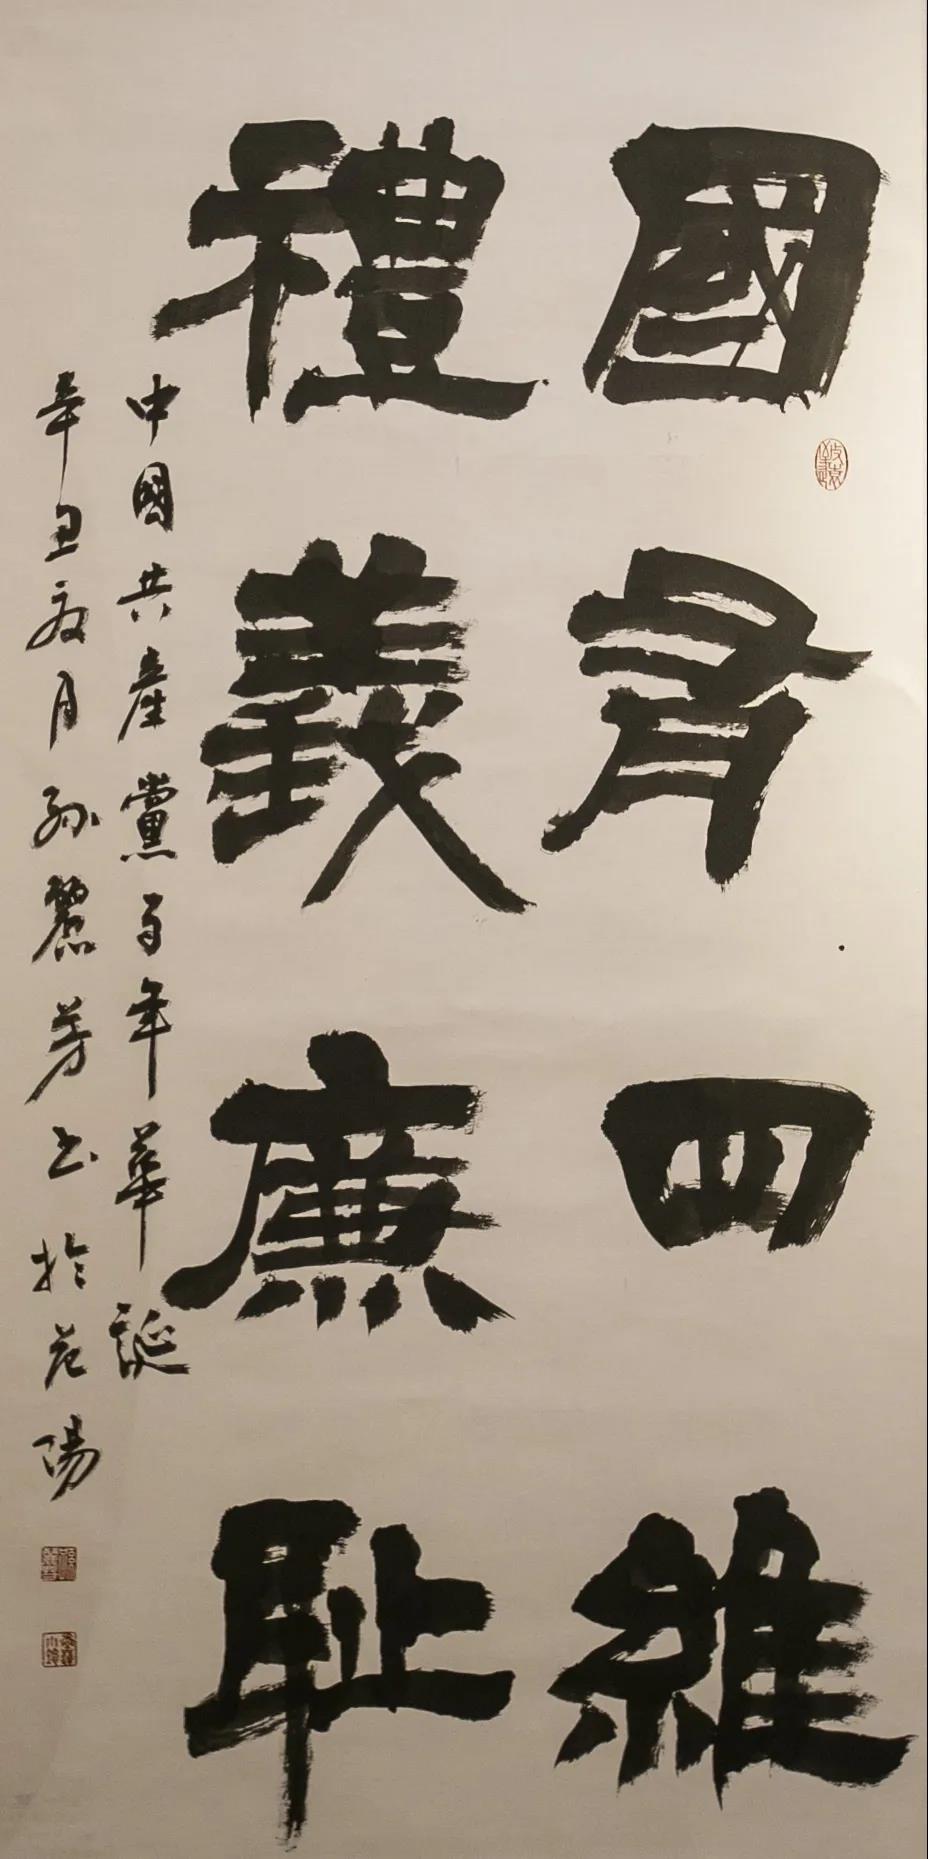 國有四維
禮義廉耻
中國共產黨百年華誕
辛丑夏月孫麗芳書於范陽